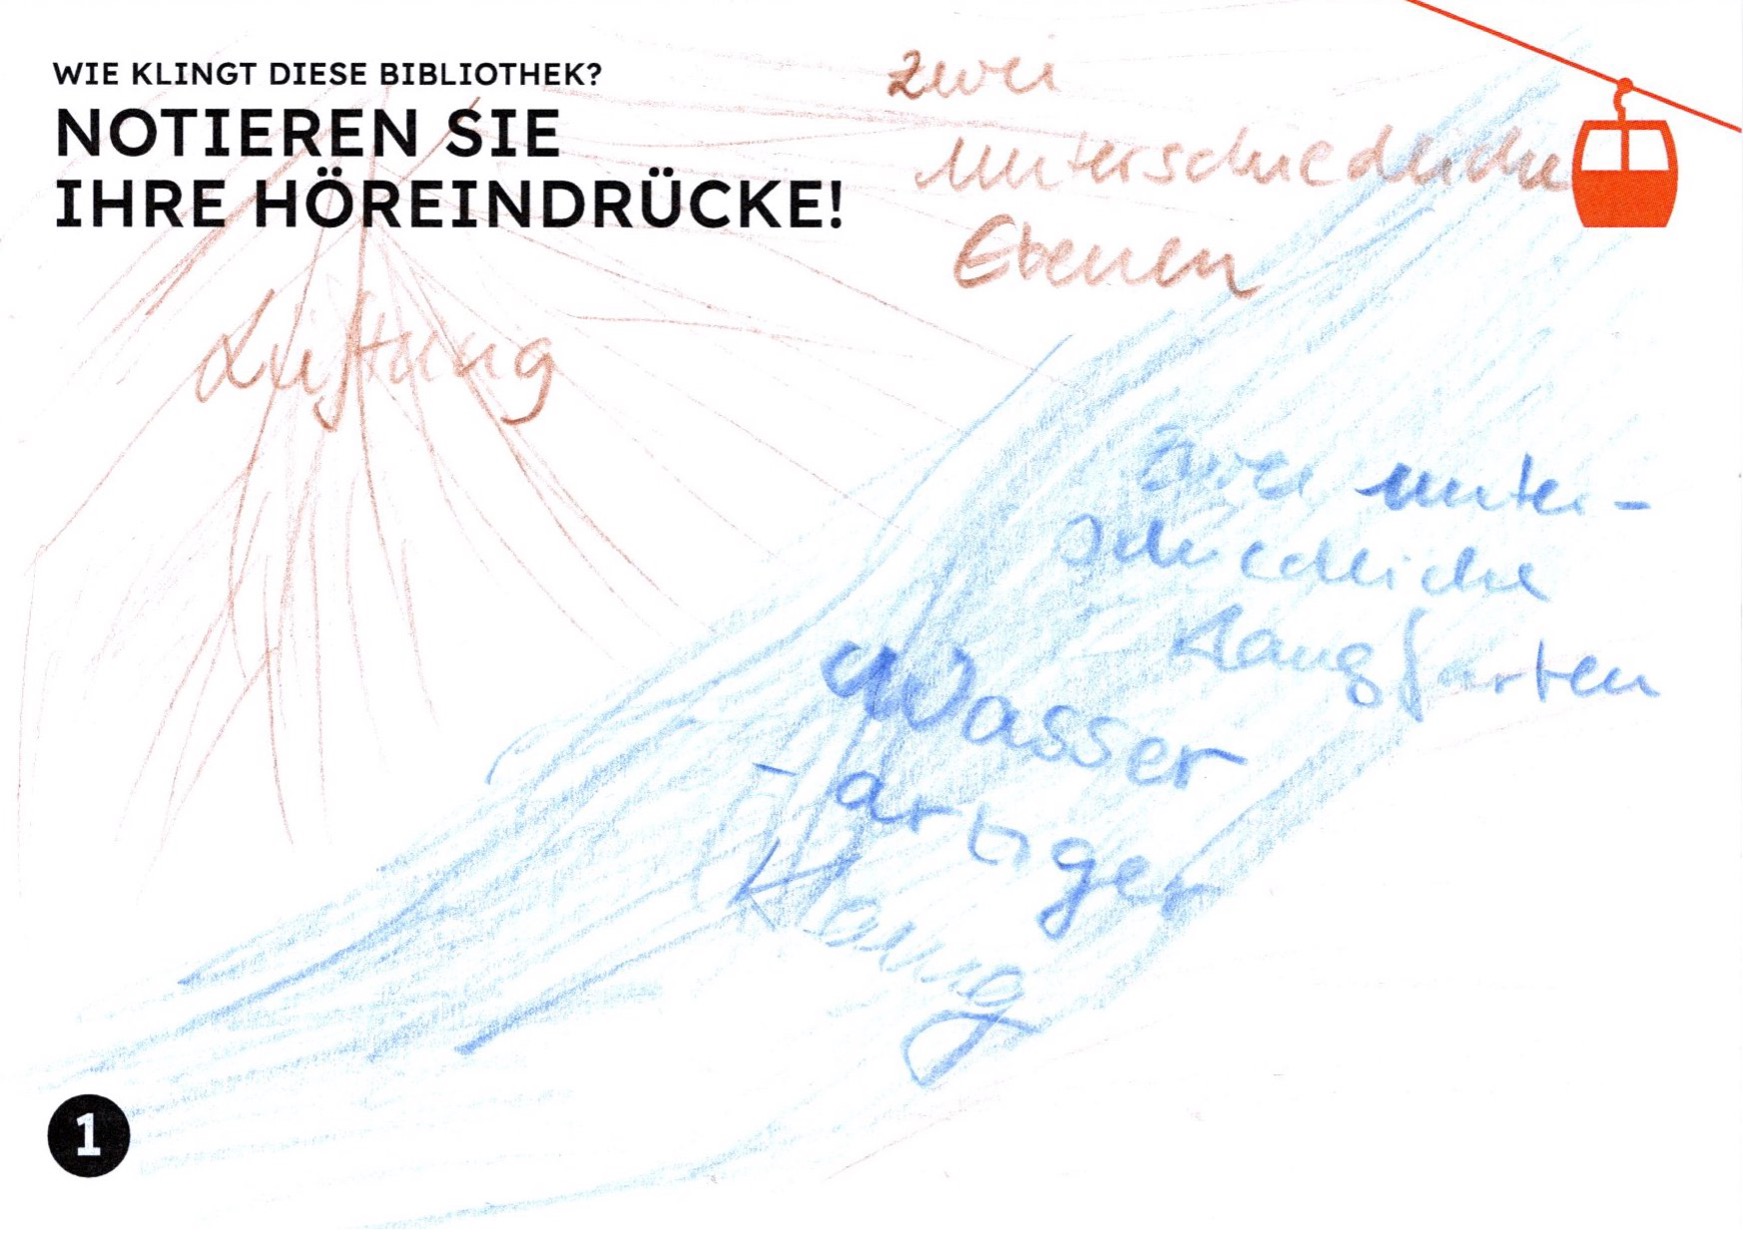 WIE KLINGT DIESE BIBLIOTHEK?
NOTIEREN SIE
IHRE HÖREINDRÜCKE!
zwei
unterschiedliche
Ebenen
Lüftung
zwei unter-
schiedliche
Klangfarten
Wasser
-artiger
Klang
1